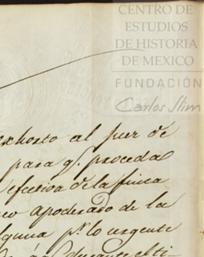 CENTRO DE
ESTUDIOS
DE HISTORIA
DE MEXICO
FUNDACIÓN
Carlos Slim
exhorto al juez de
para q. proceda
efectiva de la finca
apoderado de la
lguna p.r lo urgente